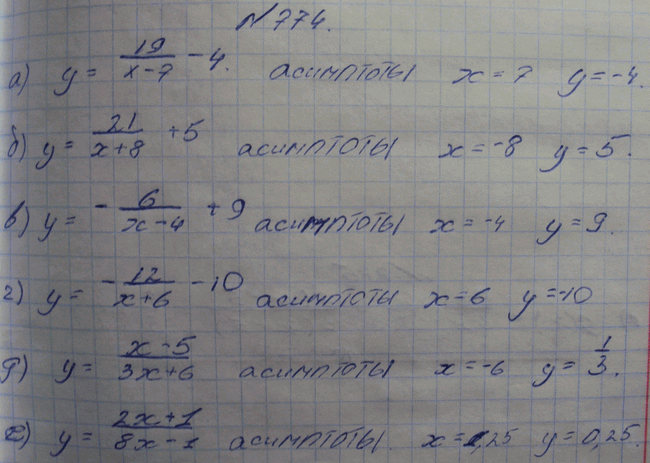 №774.
а) y = 19/(x-7) - 4. асимптоты x = 7 y = -4.
б) y = 21/(x+8) + 5 асимптоты x = -8 y = 5.
в) y = - 6/(x-4) + 9 асимптоты x = -4 y = 9.
г) y = - 12/(x+6) - 10 асимптоты x = 6 y = -10
д) y = (x-5)/(3x+6) асимптоты x = -6 y = 1/3.
е) y = (2x+1)/(8x-1) асимптоты x = 1,25 y = 0,25.